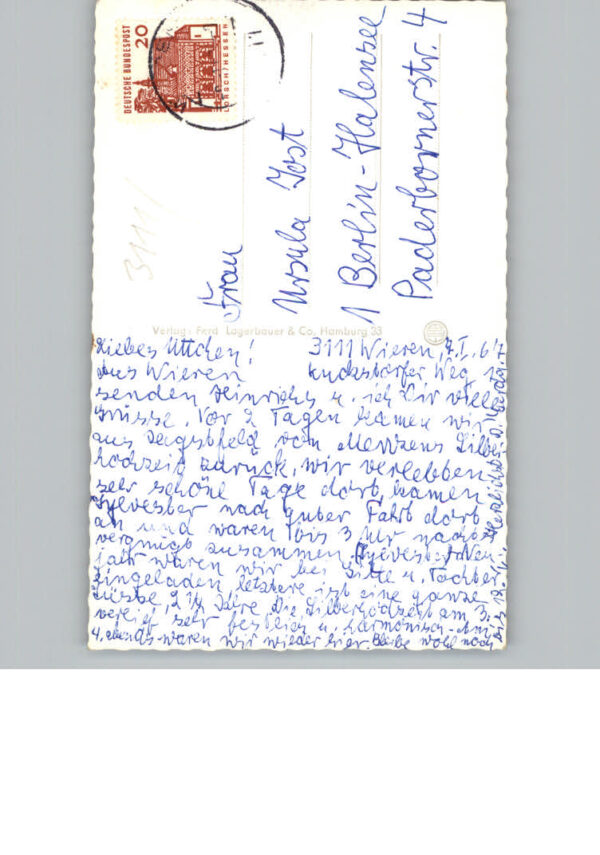 DEUTSCHE BUNDESPOST
20
LORSCH/HESSEN
3111
Frau
Ursula Jost
1 Berlin-Halensee
Paderbornerstr. 4
Verlag: Ferd. Lagerbauer & Co, Hamburg 33
Liebes Uttchen! 3111 Wieren, 7.I.67
Aus Wieren Kuckstorfer Weg
senden Heinrichs u. ich Dir viele
Grüsse. Vor 2 Tagen kamen wir
aus Jagstfeld von Silber
hochzeit zurück, wir verlebten
sehr schöne Tage dort, kamen
Sylvester nach guter Fahrt dort
an und waren bis 3 Uhr nachts
vergnügt zusammen. Sylvester Neu
jahr waren wir bei Gitte u. Tochter
eingeladen, letztere ist eine ganze
Süsse, 2 ½ Jahre. Die Silberhochzeit am 3.
verlief sehr festlich u. harmonisch. Am
4. abends waren wir wieder hier. Bleibe wohl noch
bis 18.